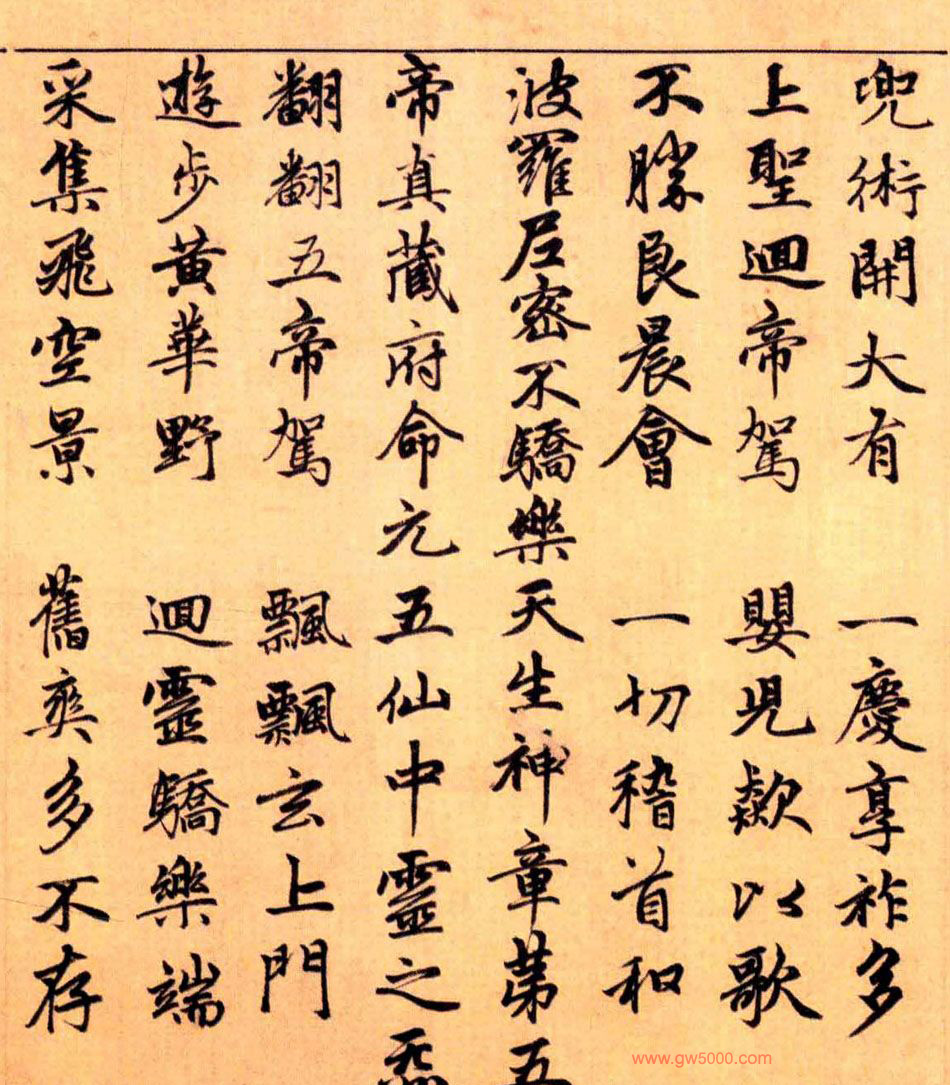 兜術開大有 一慶享祚多
上聖迴帝駕 嬰兒歘以歌
不勝良晨會 一切稽首和
波羅尼密不驕樂天生神章第五
帝真藏府命元五仙中靈之炁
翻翻五帝駕 飄飄玄上門
遊步黃華野 迴靈驕樂端
采集飛空景 舊爽多不存
www.gw5000.com